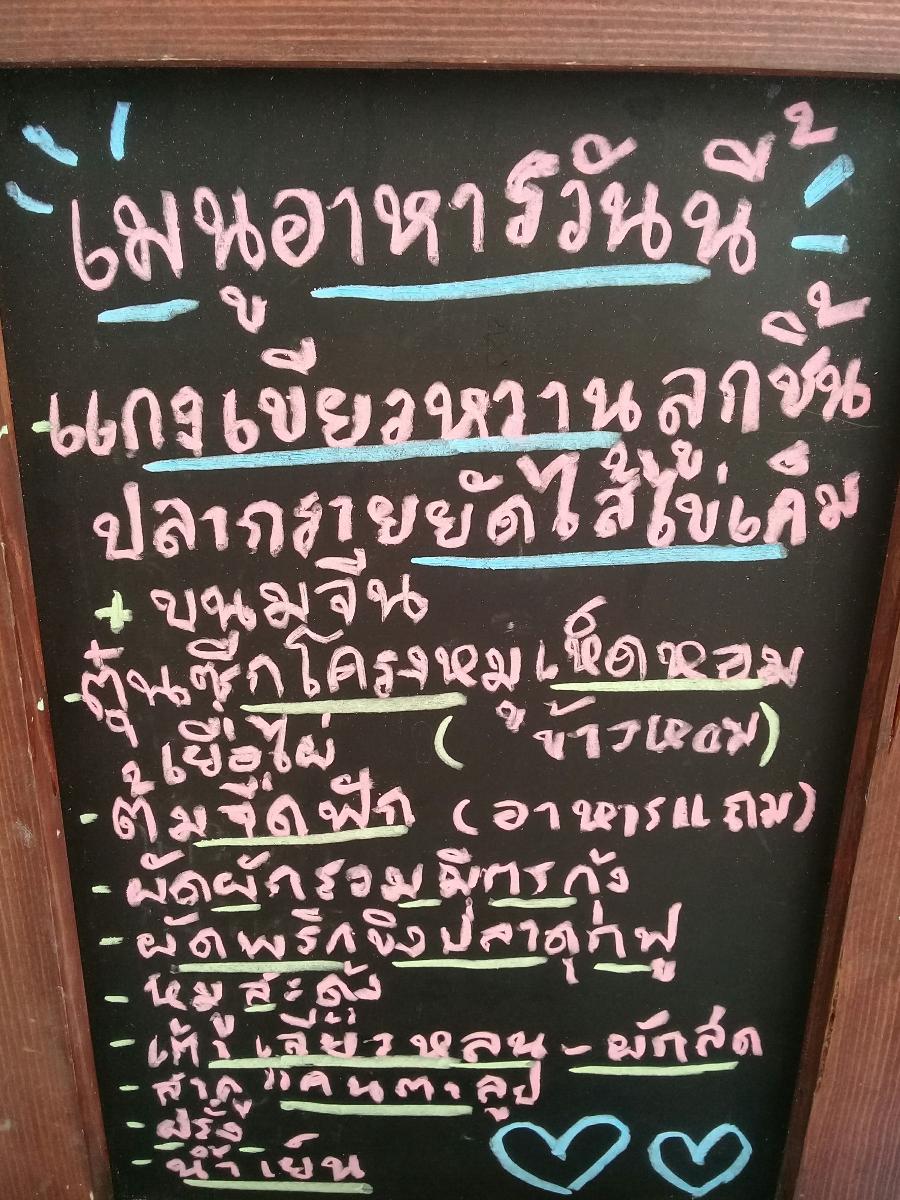 เมนูอาหารวันนี้
- แกงเขียวหวานลูกชิ้น
ปลากรายยัดไส้ไข่เค็ม
+ ขนมจีน
- ตุ๋นซี่กโครงหมูเห็ดหอม
เยื่อไผ่ (ข้าวหอม)
- ต้มจืดฟัก (อาหารแถม)
- ผัดผักรวมมิตรกุ้ง
- ผัดพริกขิงปลาดุกฟู
- หมูสะดุ้ง
- เต้าเจี้ยวหลน - ผักสด
- สาคูแคนตาลูป
- ฝรั่ง
- น้ำเย็น